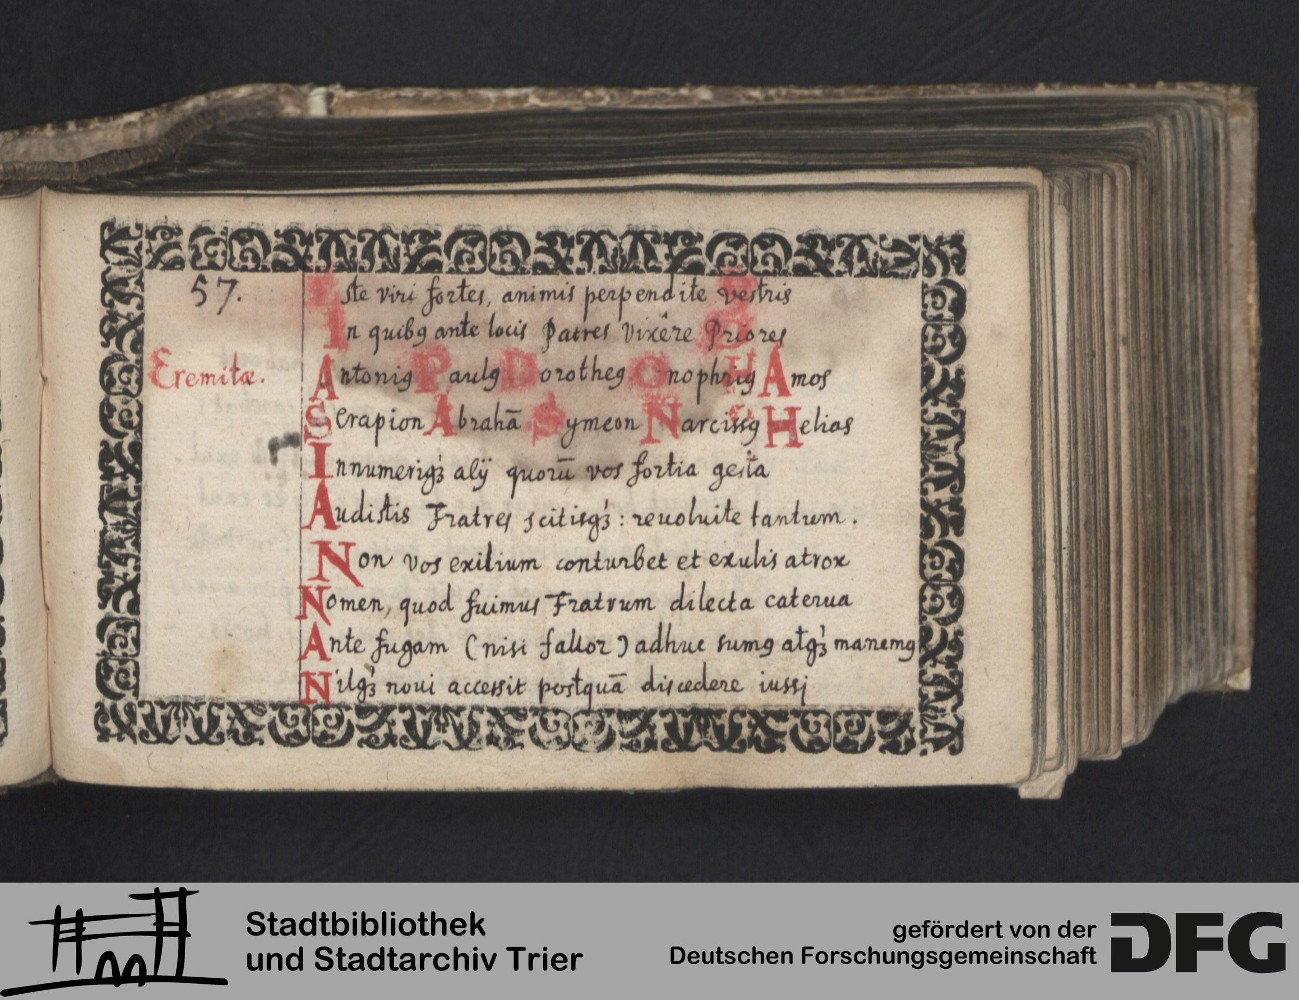 57.
Iste viri fortes, animis perpendite vestris
In quibꝯ ante locis Patres vixêre Priores
Eremitæ.
Antoniꝯ Paulꝯ Dorotheꝯ Onophriꝯ Amos
Serapion Abrahā Symeon Narcissꝯ Helias
Innumeriqꝫ alij quorū vos fortia gesta
Audistis Fratres scitisqꝫ: reuoluite tantum.
Non vos exilium conturbet et exulis atrox
Nomen, quod fuimus Fratrum dilecta caterua
Ante fugam (nisi fallor) adhuc sumꝯ atqꝫ manemꝯ
Nilqꝫ noui accessit postquā discedere iussi
Stadtbibliothek
und Stadtarchiv Trier
gefördert von der
Deutschen Forschungsgemeinschaft
DFG